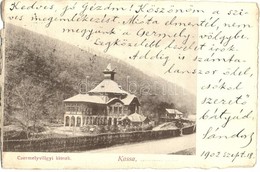 Kedves, jó Gézám! Köszönöm a szí-
ves megemlékezést. Mióta elmentél, nem
megyünk a Csermely völgybe.
Legközelebb levelet írok.
Addig is számta-
lanszor ölel,
csókol
szerető
bátyád,
Sándor
1902 szept. 18.
Csermelyvölgyi kioszk.
Kassa,